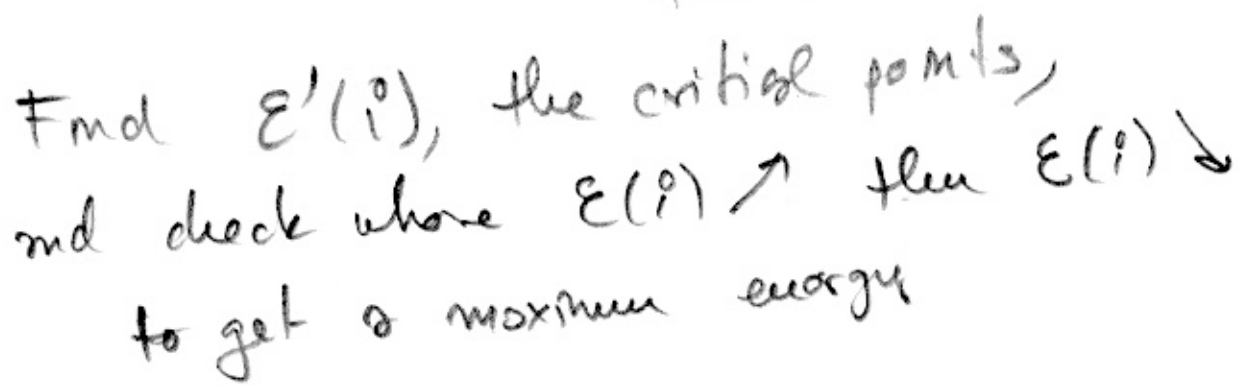 Find ε'(i), the critical points,
and check where ε(i) ↗ then ε(i) ↘
to get a maximum energy